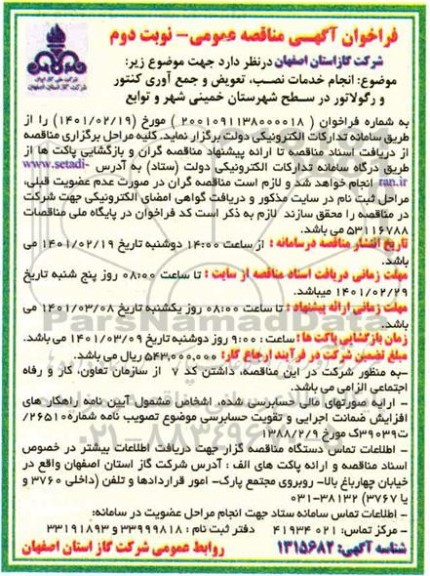 فراخوان آگهی مناقصه عمومی- نوبت دوم
شرکت گاز استان اصفهان درنظر دارد جهت موضوع زیر:
موضوع: انجام خدمات نصب، تعویض و جمع آوری کنتور
و رگولاتور در سطح شهرستان خمینی شهر و توابع
شرکت ملی گاز ایران
شرکت گاز استان اصفهان
به شماره فراخوان ( ۲۰۰۱۰۹۱۱۳۸۰۰۰۰۱۸ ) مورخ (۱۴۰۱/۰۲/۱۹) را از
طریق سامانه تدارکات الکترونیکی دولت برگزار نماید. کلیه مراحل برگزاری مناقصه
از دریافت اسناد مناقصه تا ارائه پیشنهاد مناقصه گران و بازگشایی پاکت ها از
طریق درگاه سامانه تدارکات الکترونیکی دولت (ستاد) به آدرس www.setadi-
ran.ir انجام خواهد شد و لازم است مناقصه گران در صورت عدم عضویت قبلی،
مراحل ثبت نام در سایت مذکور و دریافت گواهی امضای الکترونیکی جهت شرکت
در مناقصه را محقق سازند لازم به ذکر است کد فراخوان در پایگاه ملی مناقصات
۵۳۱۱۶۷۸۸ می باشد.
تاریخ انتشار مناقصه درسامانه : از ساعت ۱۴:۰۰ دوشنبه تاریخ ۱۴۰۱/۰۲/۱۹ می
باشد.
مهلت زمانی دریافت اسناد مناقصه از سایت : تا ساعت ۰۸:۰۰ روز پنج شنبه تاریخ
۱۴۰۱/۰۲/۲۹ میباشد.
مهلت زمانی ارائه پیشنهاد : تا ساعت ۰۸:۰۰ روز یکشنبه تاریخ ۱۴۰۱/۰۳/۰۸ می
باشد.
زمان بازگشایی پاکت ها : ساعت : ۹:۰۰ روز دوشنبه تاریخ ۱۴۰۱/۰۳/۰۹ می باشد.
مبلغ تضمین شرکت در فرآیند ارجاع کار: ۵۴۳,۰۰۰,۰۰۰ ریال می باشد.
-به منظور شرکت در این مناقصه، داشتن کد ۷ از سازمان تعاون، کار و رفاه
اجتماعی الزامی می باشد.
- ارایه صورتهای مالی حسابرسی شده، اشخاص مشمول آیین نامه راهکار های
افزایش ضمانت اجرایی و تقویت حسابرسی موضوع تصویب نامه شماره ۲۶۵۱۰/
ت۳۹۰۳۹ک مورخ ۱۳۸۸/۲/۹
- اطلاعات تماس دستگاه مناقصه گزار جهت دریافت اطلاعات بیشتر در خصوص
اسناد مناقصه و ارائه پاکت های الف : آدرس شرکت گاز استان اصفهان واقع در
خیابان چهارباغ بالا- روبروی مجتمع پارک- امور قراردادها و تلفن (داخلی ۳۷۶۰ و
یا ۳۷۶۷) ۰۳۱-۳۸۱۳۲
- اطلاعات تماس سامانه ستاد جهت انجام مراحل عضویت در سامانه:
- مرکز تماس: ۰۲۱ ۴۱۹۳۴ دفتر ثبت نام : ۳۳۹۹۹۸۱۸ و ۳۳۱۹۱۸۹۳
شناسه آگهی: ۱۳۱۵۶۸۲ روابط عمومی شرکت گاز استان اصفهان
ParsNamadData
۰۲۱-۸۸۳۴۹۶۷۰-۵